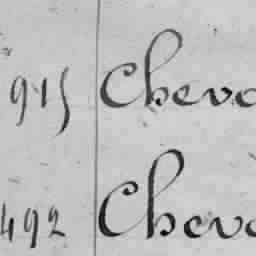 915 Cheva
492 Cheva